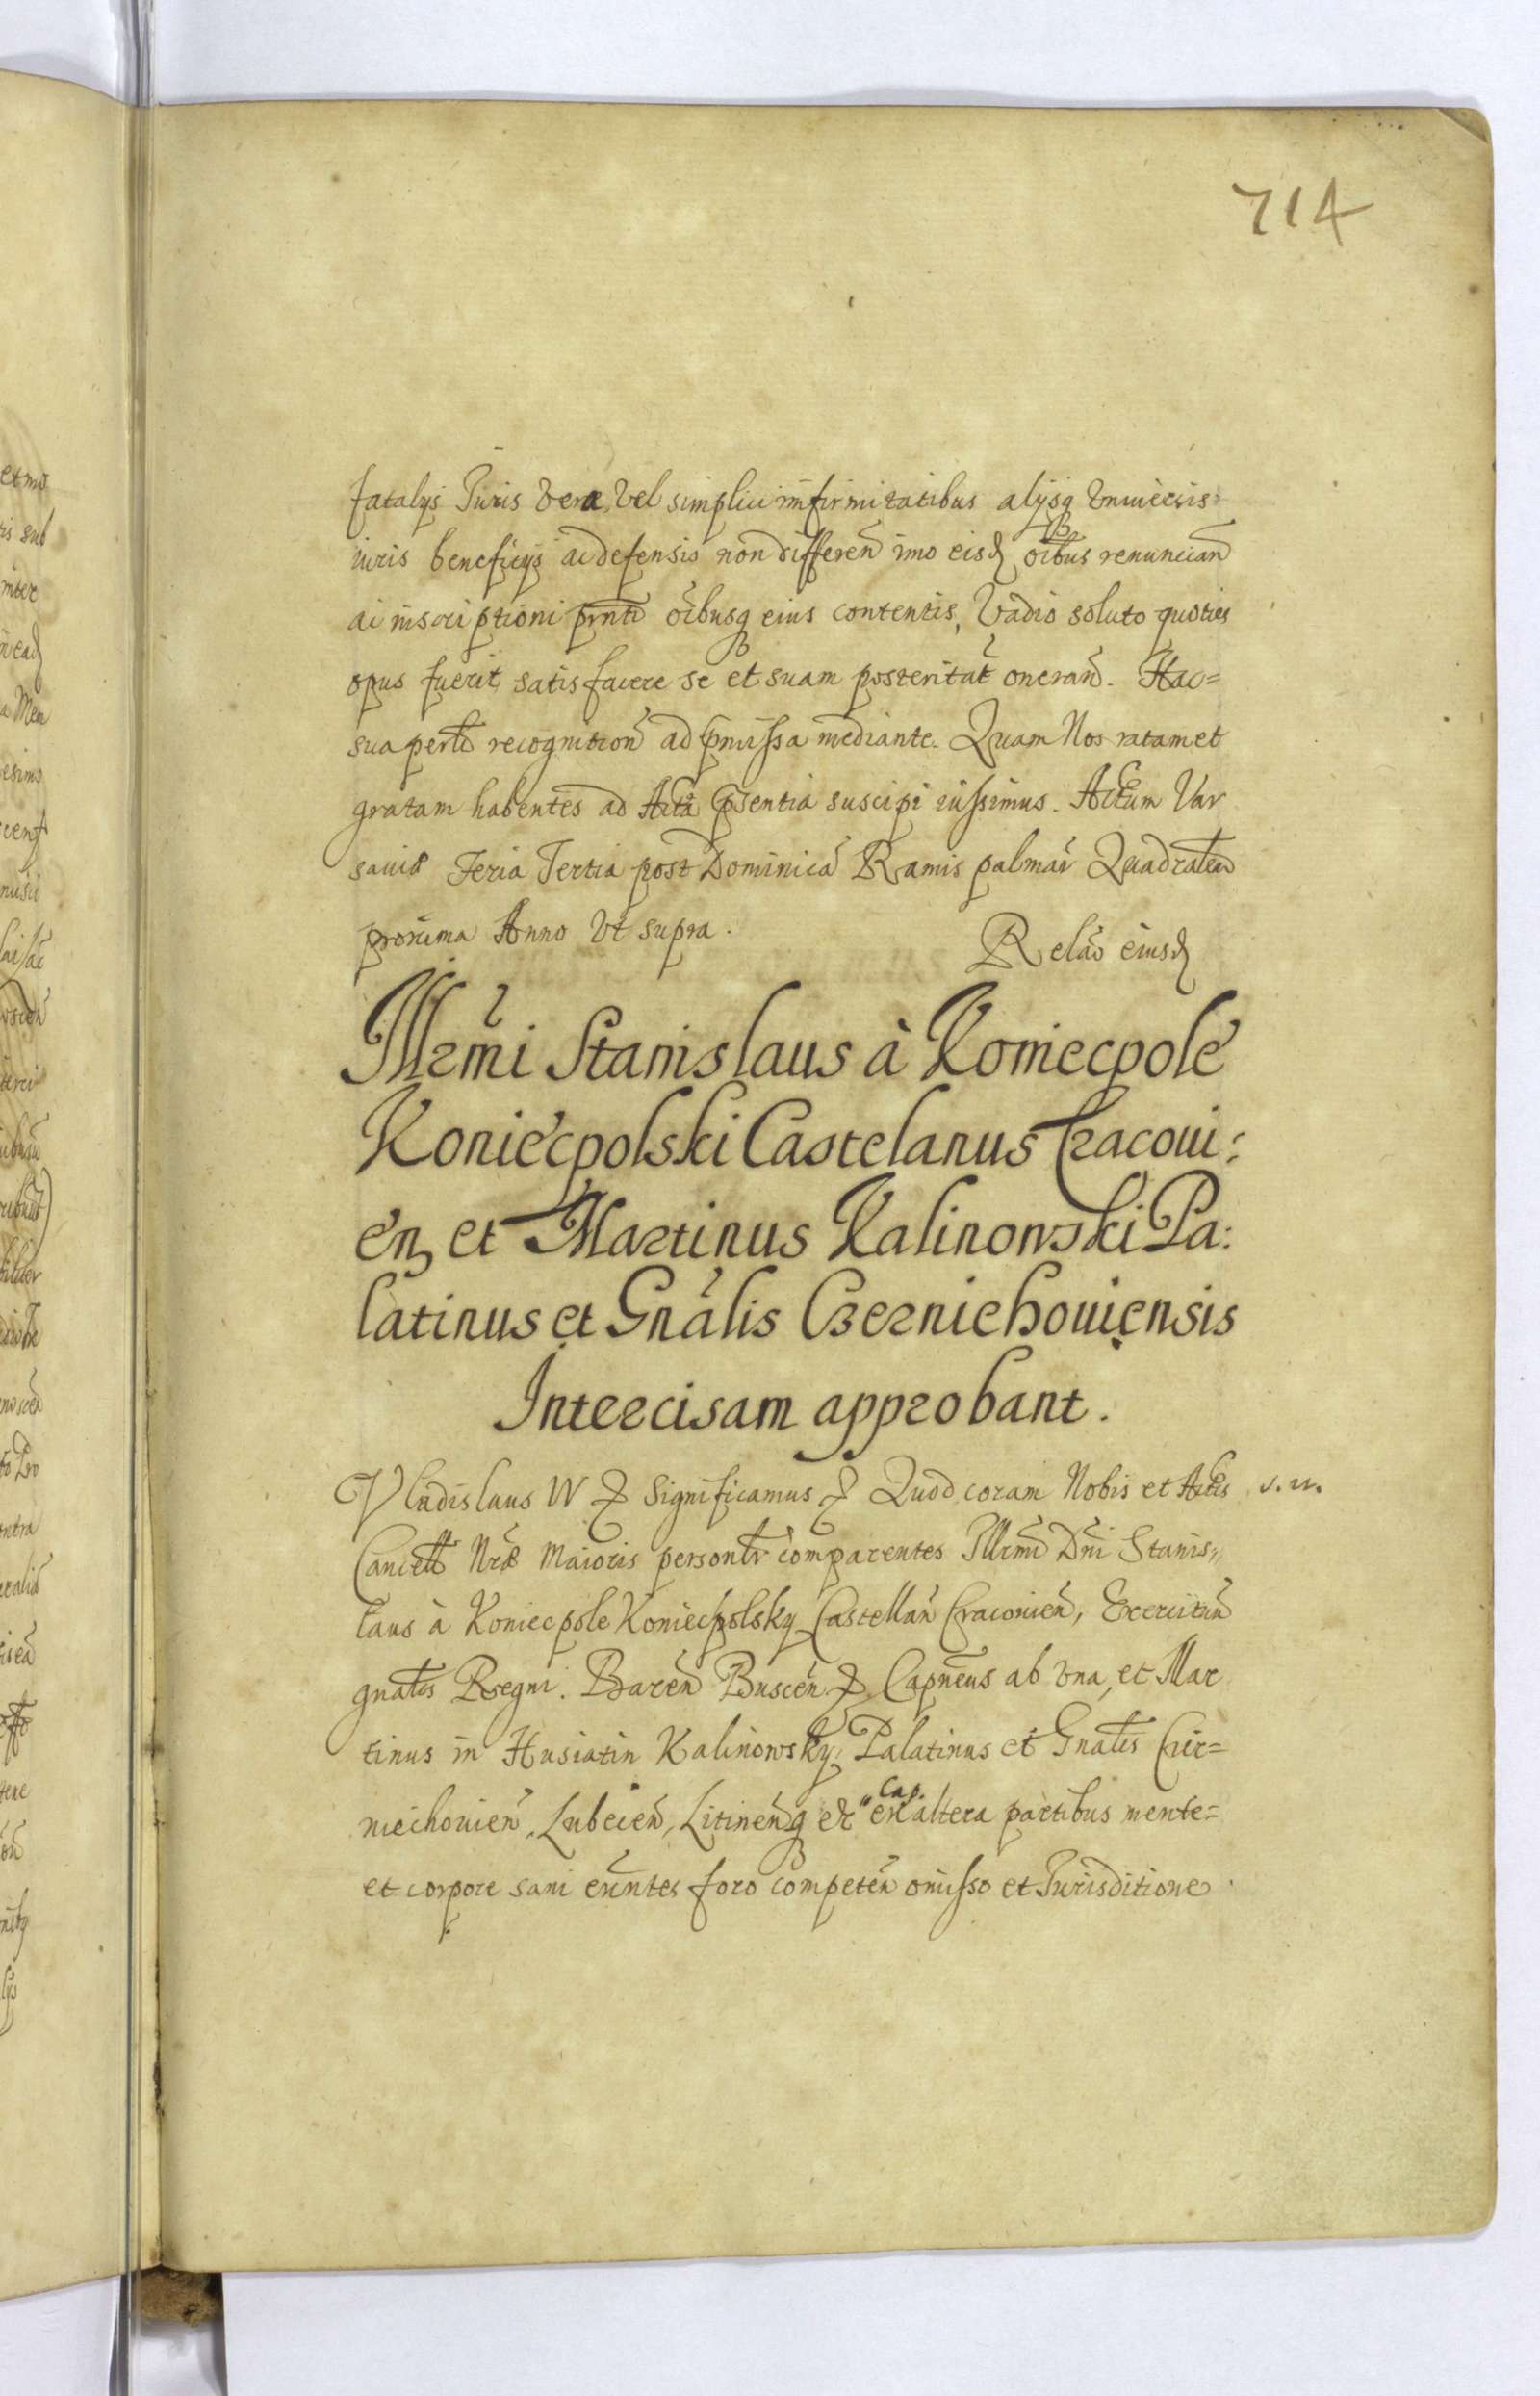 714
fatalys Juris vera, vel simplici infirmitatibus alysq vniuersis
iuris beneficys ac defensis non differen̄ imo eisd oībus renuncian̄
ac inscriptioni prnti oībusq eius contentis, Vadio soluto quoties
opus fuerit, satisfacere se et suam posteritat̄ oneran̄. Hac=
sua perlīb recognition̄ ad pmissa mediante. Quam Nos ratam et
gratam habentes ad Acta pSentia suscipi iussimus. Actum Var
sauiæ Feria Tertia post Dominicā Ramis palmar̄ Quadralem
proxima Anno Vt supra.
Relāo eiusd
Illrm̄i Stanislaus à Koniecpole
Koniecpolski Castelanus Cracoui:
en, et Martinus Kalinowski Pa:
latinus et Gnālis Czerniehouiensis
Intercisam approbant.
Vladislaus IV & Significamus & Quod coram Nobis et Actis s. n.
Cancell Nræ Maioris personlr comparentes Illrmi Dni Stanis„
laus à Koniecpole Koniecpolsky Castellan̄ Cracouien̄, Exercitun̄
gnalis Regni. Baren̄ Buscen̄ & Capneus ab vna, et Mar
tinus in Husiatin Kalinowsky, Palatinus et Gnalis Czer=
niechouien̄, Lubecen̄, Litinen̄q etc Cap. ex altera partibus mente=
et corpore sani exn̄tes foro competen̄ omisso et Jurisditione